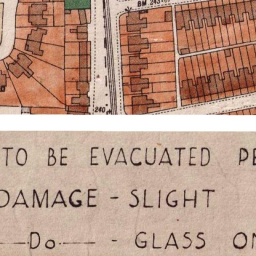 BM 243
240
TO BE EVACUATED PE
DAMAGE - SLIGHT
Do - GLASS ON